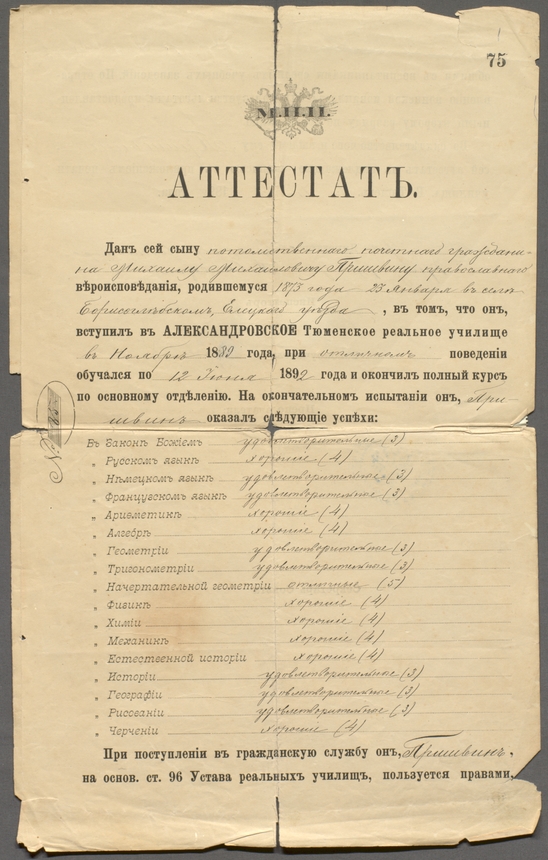 75
М.Н.П.
АТТЕСТАТЪ.
Данъ сей сыну потомственнаго почетнаго граждани-
на Михаилу Михаиловичу Пришвину православнаго
вѣроисповѣданія, родившемуся 1873 года 23 Января въ селѣ
Борисоглѣбскомъ, Елецкаго уѣзда, въ томъ, что онъ,
вступилъ въ АЛЕКСАНДРОВСКОЕ Тюменское реальное училище
въ Ноябрѣ 1889 года, при отличномъ поведеніи
обучался по 12 Іюня 1892 года и окончилъ полный курсъ
по основному отдѣленію. На окончательномъ испытаніи онъ, При-
швинъ оказалъ слѣдующіе успѣхи:
№
Въ Законѣ Божіемъ удовлетворительные (3)
„ Русскомъ языкѣ хорошіе (4)
„ Нѣмецкомъ языкѣ удовлетворительные (3)
„ Французскомъ языкѣ удовлетворительные (3)
„ Ариѳметикѣ хорошіе (4)
„ Алгебрѣ хорошіе (4)
„ Геометріи удовлетворительные (3)
„ Тригонометріи удовлетворительные (3)
„ Начертательной геометріи отличные (5)
„ Физикѣ хорошіе (4)
„ Химіи хорошіе (4)
„ Механикѣ хорошіе (4)
„ Естественной исторіи хорошіе (4)
„ Исторіи удовлетворительные (3)
„ Географіи удовлетворительные (3)
„ Рисованіи удовлетворительные (3)
„ Черченіи хорошіе (4)
При поступленіи въ гражданскую службу онъ, Пришвинъ,
на основ. ст. 96 Устава реальныхъ училищъ, пользуется правами,